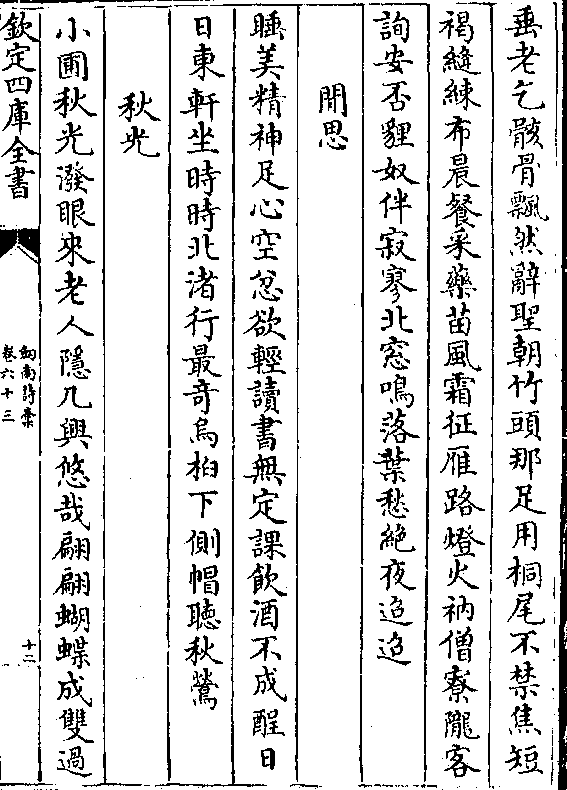 垂老乞骸骨飄然辭聖朝竹頭那足用桐尾不禁焦短
褐縫練布晨餐采藥苗風霜征雁路燈火衲僧寮隴客
詢安否貍奴伴寂寥北窓鳴落葉愁絶夜迢迢
閒思
睡美精神足心空忿欲輕讀書無定課飲酒不成酲日
日東軒坐時時北渚行最奇烏桕下側帽聽秋鶯
秋光
小圃秋光潑眼來老人隱几興悠哉翩翩蝴蝶成雙過
欽定四庫全書
劔南詩藁
卷六十三
十二